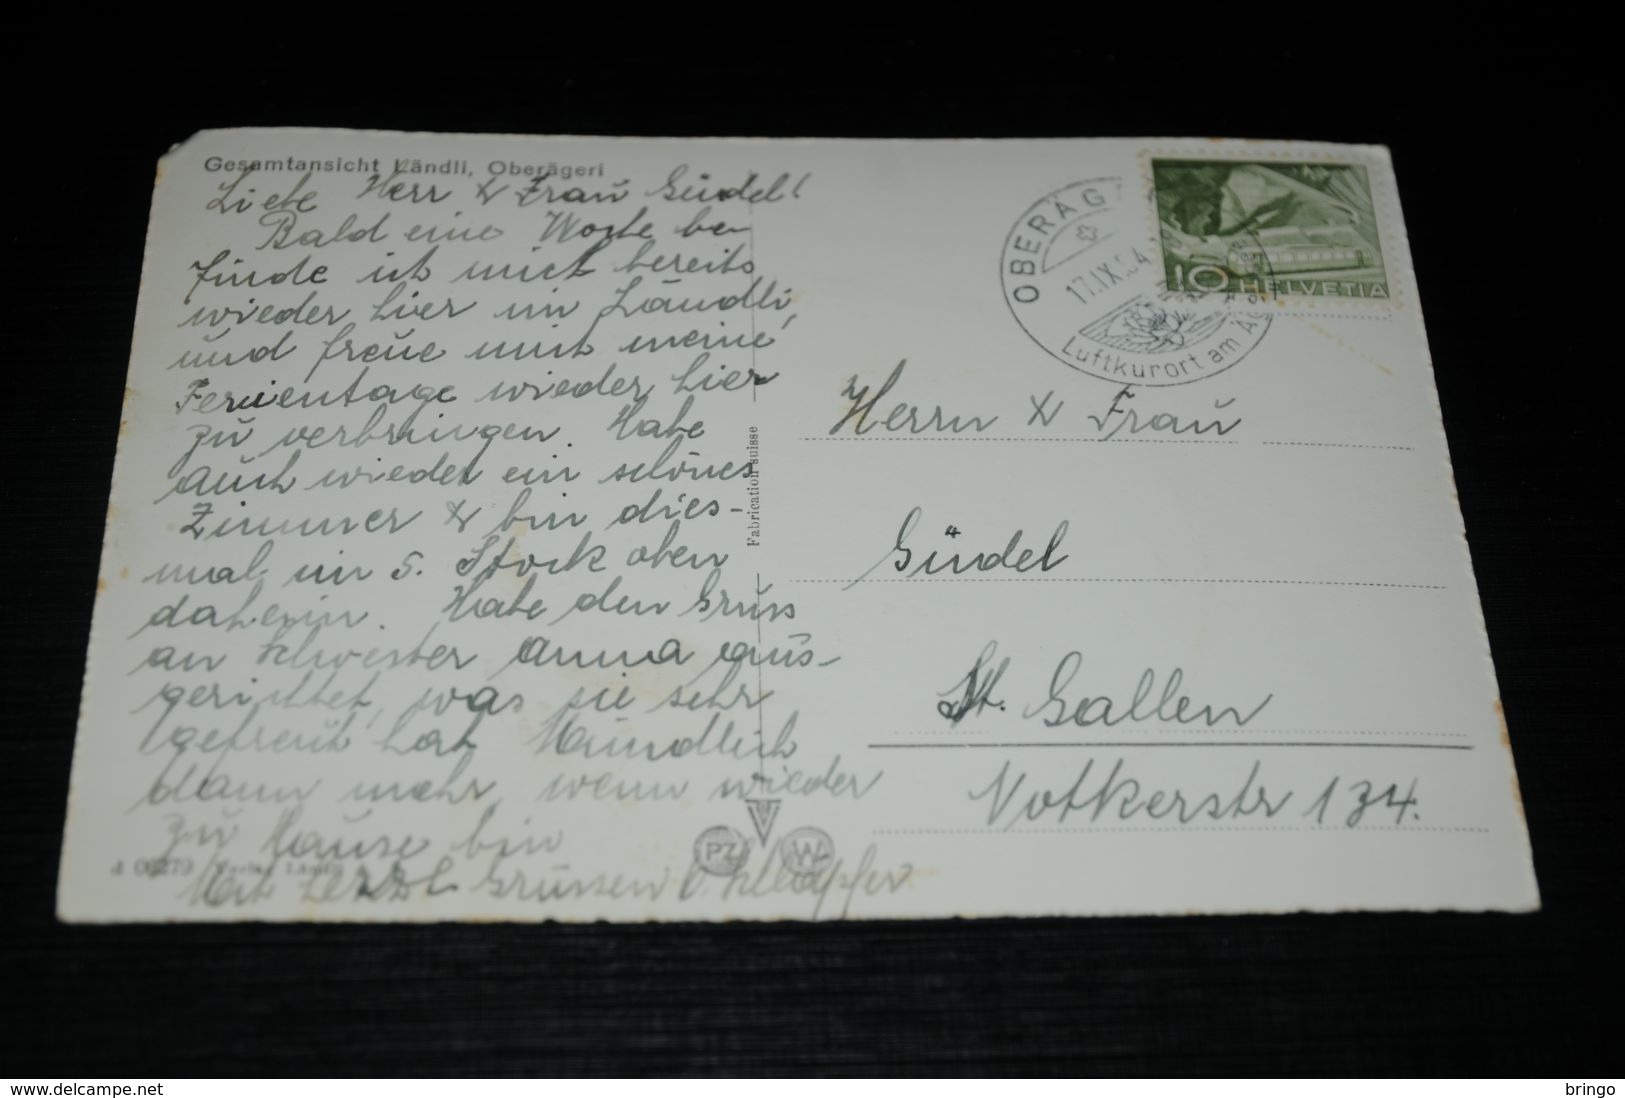 Gesamtansicht Ländli, Oberägeri
Liebe Herr & Frau Güdel!
Bald eine Woche be-
finde ich mich bereits
wieder hier im Ländli,
und freue mich meine
Ferientage wieder hier
zu verbringen. Habe
auch wieder ein schönes
Zimmer & bin dies-
mal im 5. Stock oben
daheim. Habe den Gruss
an Schwester Anna aus-
gerichtet, was sie sehr
gefreut hat. Mündlich
dann mehr, wenn wieder
zu Hause bin
Mit herzl. Grüssen
4 06279 Verlag Ländli
Fabrication suisse
PZ W
OBERÄG
17.IX.54
Luftkurort am
10 HELVETIA
Herrn & Frau
Güdel
St. Gallen
Notkerstr 134.
delcampe.net
bringo